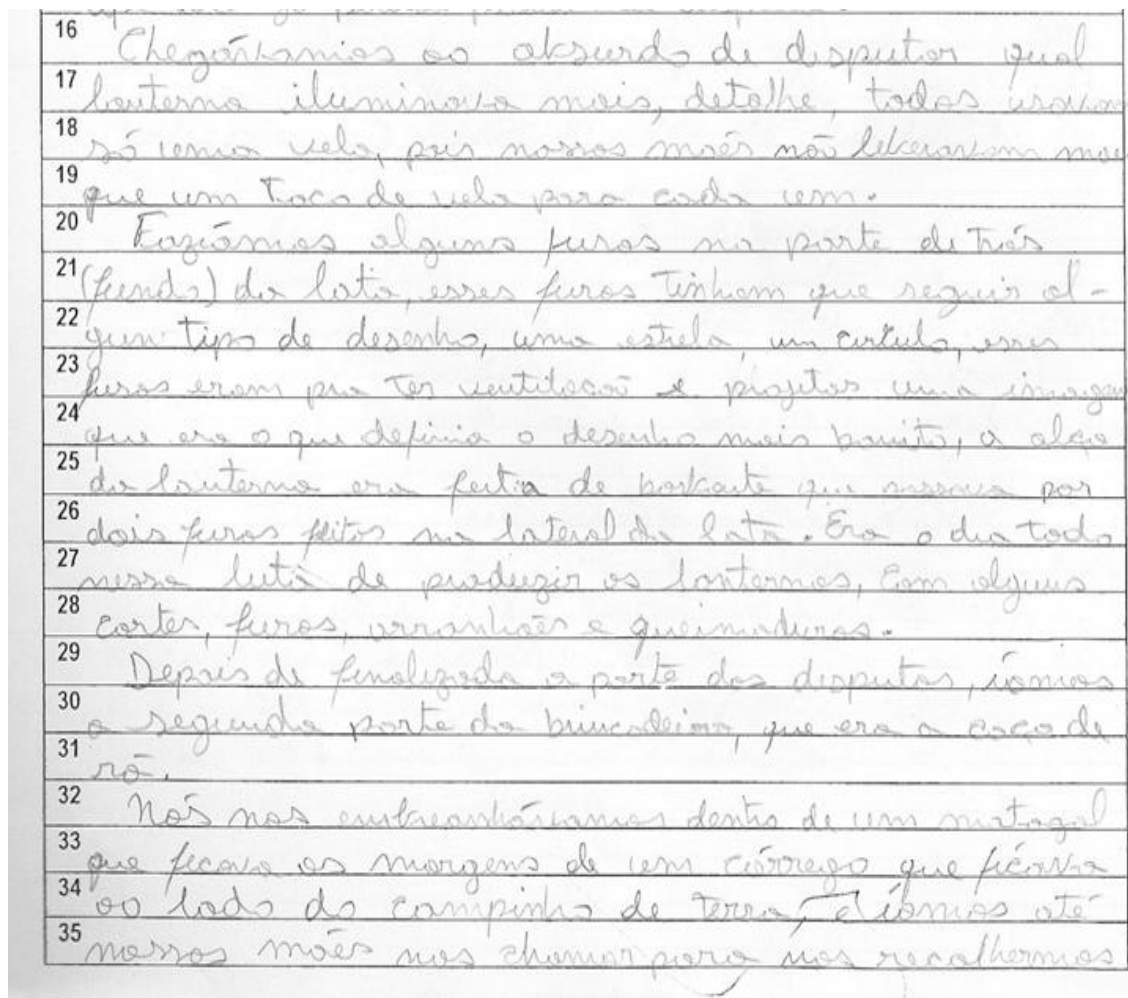 16 Chegávamos ao absurdo de disputar qual
17 lanterna iluminava mais, detalhe, todas usavam
18 só uma vela, pois nossas mães não liberavam mais
19 que um toco de vela para cada um.
20 Faziámos alguns furos na parte de trás
21 (fundo) da lata, esses furos tinham que seguir al-
22 gum tipo de desenho, uma estrela, um circulo, esses
23 furos eram pra ter ventilação e projetar uma imagem
24 que era o que definia o desenho mais bonito, a alça
25 da lanterna era feita de barbante que passava por
26 dois furos feitos na lateral da lata. Era o dia todo
27 nessa luta de produzir as lanternas, com alguns
28 cortes, furos, arranhões e queimaduras.
29 Depois de finalizada a parte das disputas, iamos
30 a segunda parte da brincadeira, que era a caça de
31 rã.
32 Nós nos dentro de um matagal
33 que ficava as margens de um córrego que ficava
34 ao lado do campinho de terra, e iamos até
35 nossas mães nos chamar para nos recolhermos